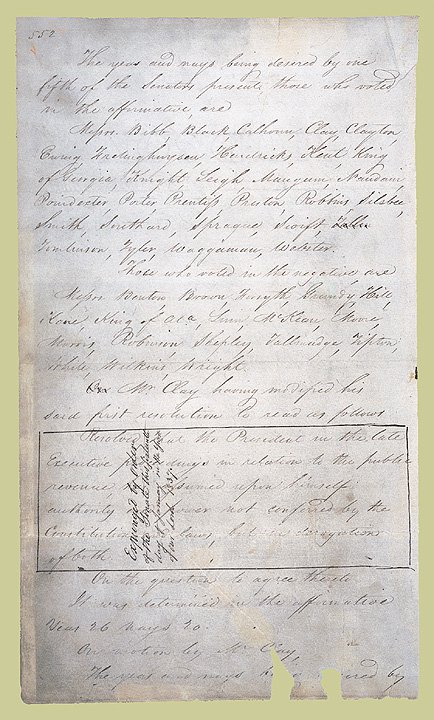 552
The yeas and nays being desired by one
fifth of the Senators present, those who voted
in the affirmative, are
Messrs. Bibb, Black, Calhoun, Clay, Clayton,
Ewing, Frelinghuysen, Hendricks, Kent, King
of Georgia, Knight, Leigh, Mangum, Naudain,
Poindexter, Porter, Prentiss, Preston, Robbins, Silsbee,
Smith, Southard, Sprague, Swift,
Tomlinson, Tyler, Waggaman, Webster.
Those who voted in the negative are
Messrs. Benton, Brown, Forsyth, Grundy, Hill,
Kane, King of Ala, Linn, McKean, Moore,
Morris, Robinson, Shepley, Tallmadge, Tipton,
White, Wilkins, Wright.
Mr. Clay, having modified his
said first resolution to read as follows
Resolved, That the President in the late
Executive proceedings in relation to the public
revenue, has assumed upon himself
authority and power not conferred by the
Constitution and laws, but in derogation
of both
Expunged by order
of the Senate this
day of January in the year
of our Lord 1837.
On the question to agree thereto
It was determined in the affirmative
Yeas 26 Nays 20
On motion by Mr. Clay,
The yeas and nays being desired by